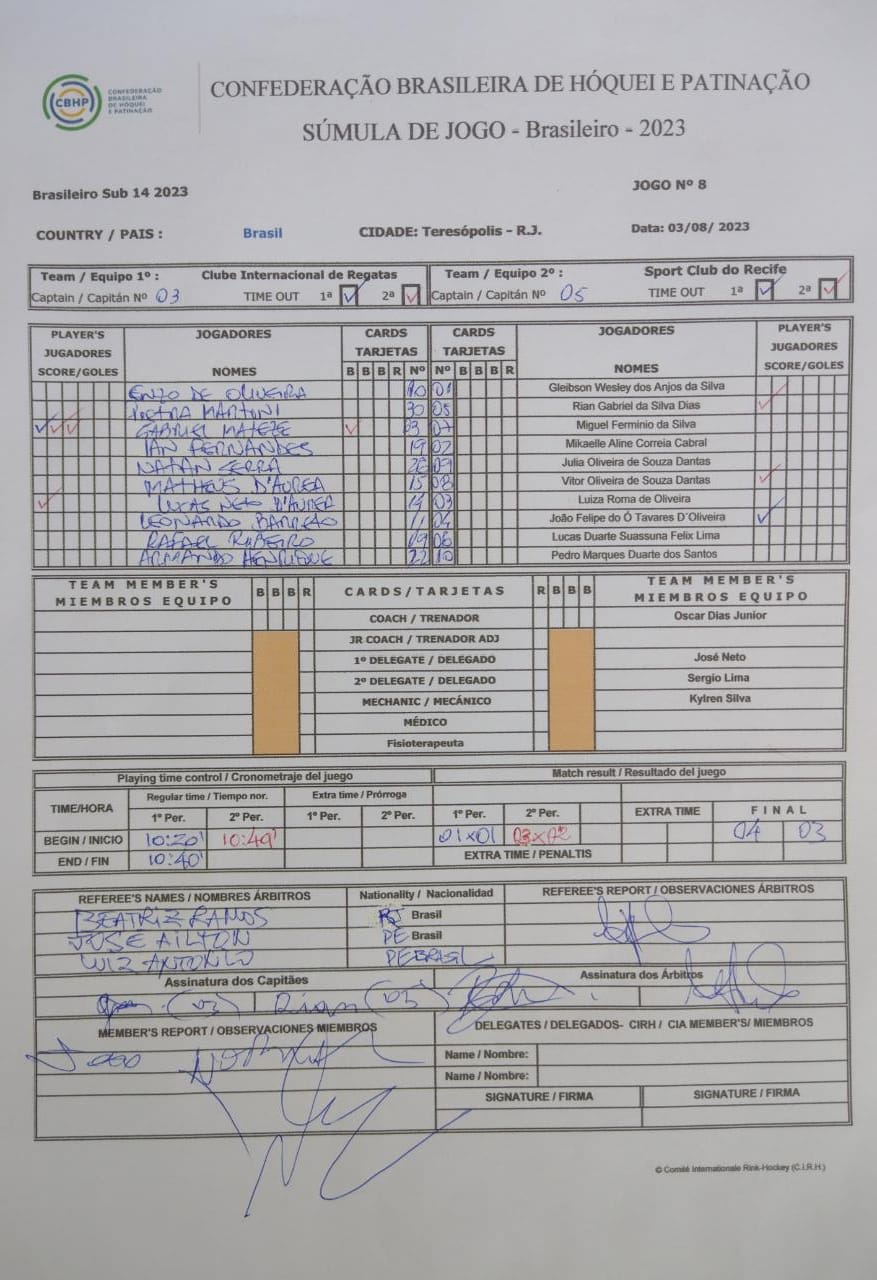 CBHP CONFEDERAÇÃO BRASILEIRA DE HÓQUEI E PATINAÇÃO
CONFEDERAÇÃO BRASILEIRA DE HÓQUEI E PATINAÇÃO
SÚMULA DE JOGO - Brasileiro - 2023
Brasileiro Sub 14 2023 JOGO Nº 8
COUNTRY / PAIS : Brasil CIDADE: Teresópolis - R.J. Data: 03/08/ 2023
Team / Equipo 1º : Clube Internacional de Regatas Team / Equipo 2º : Sport Club do Recife
Captain / Capitán Nº 03 TIME OUT 1ª 2ª Captain / Capitán Nº 05 TIME OUT 1ª 2ª
PLAYER'S JOGADORES CARDS CARDS JOGADORES PLAYER'S
JUGADORES TARJETAS TARJETAS JUGADORES
SCORE/GOLES NOMES B B B R Nº Nº B B B R NOMES SCORE/GOLES
ENZO DE OLIVEIRA 10 01 Gleibson Wesley dos Anjos da Silva
PIETRA MARTONI 30 05 Rian Gabriel da Silva Dias
GABRIEL MATEZE 03 07 Miguel Ferminio da Silva
IAN FERNANDES 19 02 Mikaelle Aline Correia Cabral
NATAN SERRA 09 Julia Oliveira de Souza Dantas
MATHEUS D'AUREA 15 08 Vitor Oliveira de Souza Dantas
LUCAS NETO D'AUREA 14 03 Luiza Roma de Oliveira
LEONARDO BARRETO 11 04 João Felipe do Ó Tavares D´Oliveira
RAFAEL RIBEIRO 09 06 Lucas Duarte Suassuna Felix Lima
ARMANDO HENRIQUE 22 10 Pedro Marques Duarte dos Santos
TEAM MEMBER'S TEAM MEMBER'S
MIEMBROS EQUIPO B B B R CARDS/TARJETAS R B B B MIEMBROS EQUIPO
COACH / TRENADOR Oscar Dias Junior
JR COACH / TRENADOR ADJ
1º DELEGATE / DELEGADO José Neto
2º DELEGATE / DELEGADO Sergio Lima
MECHANIC / MECÁNICO Kylren Silva
MÉDICO
Fisioterapeuta
Playing time control / Cronometraje del juego Match result / Resultado del juego
TIME/HORA Regular time / Tiempo nor. Extra time / Prórroga
1º Per. 2º Per. 1º Per. 2º Per. 1º Per. 2º Per. EXTRA TIME FINAL
BEGIN / INICIO 10:20' 10:49' 01x01 03x02 04 03
END / FIN 10:40' EXTRA TIME / PENALTIS
REFEREE'S NAMES / NOMBRES ÁRBITROS Nationality / Nacionalidad REFEREE'S REPORT / OBSERVACIONES ÁRBITROS
BEATRIZ RAMOS RJ Brasil
JOSE AILTON PE Brasil
LUIZ ANTONIO PE BRASIL
Assinatura dos Capitães Assinatura dos Árbitros
(03) Rian (05)
MEMBER'S REPORT / OBSERVACIONES MIEMBROS DELEGATES / DELEGADOS- CIRH / CIA MEMBER'S/ MIEMBROS
Name / Nombre:
Name / Nombre:
SIGNATURE / FIRMA SIGNATURE / FIRMA
© Comité Internationale Rink-Hockey (C.I.R.H.)